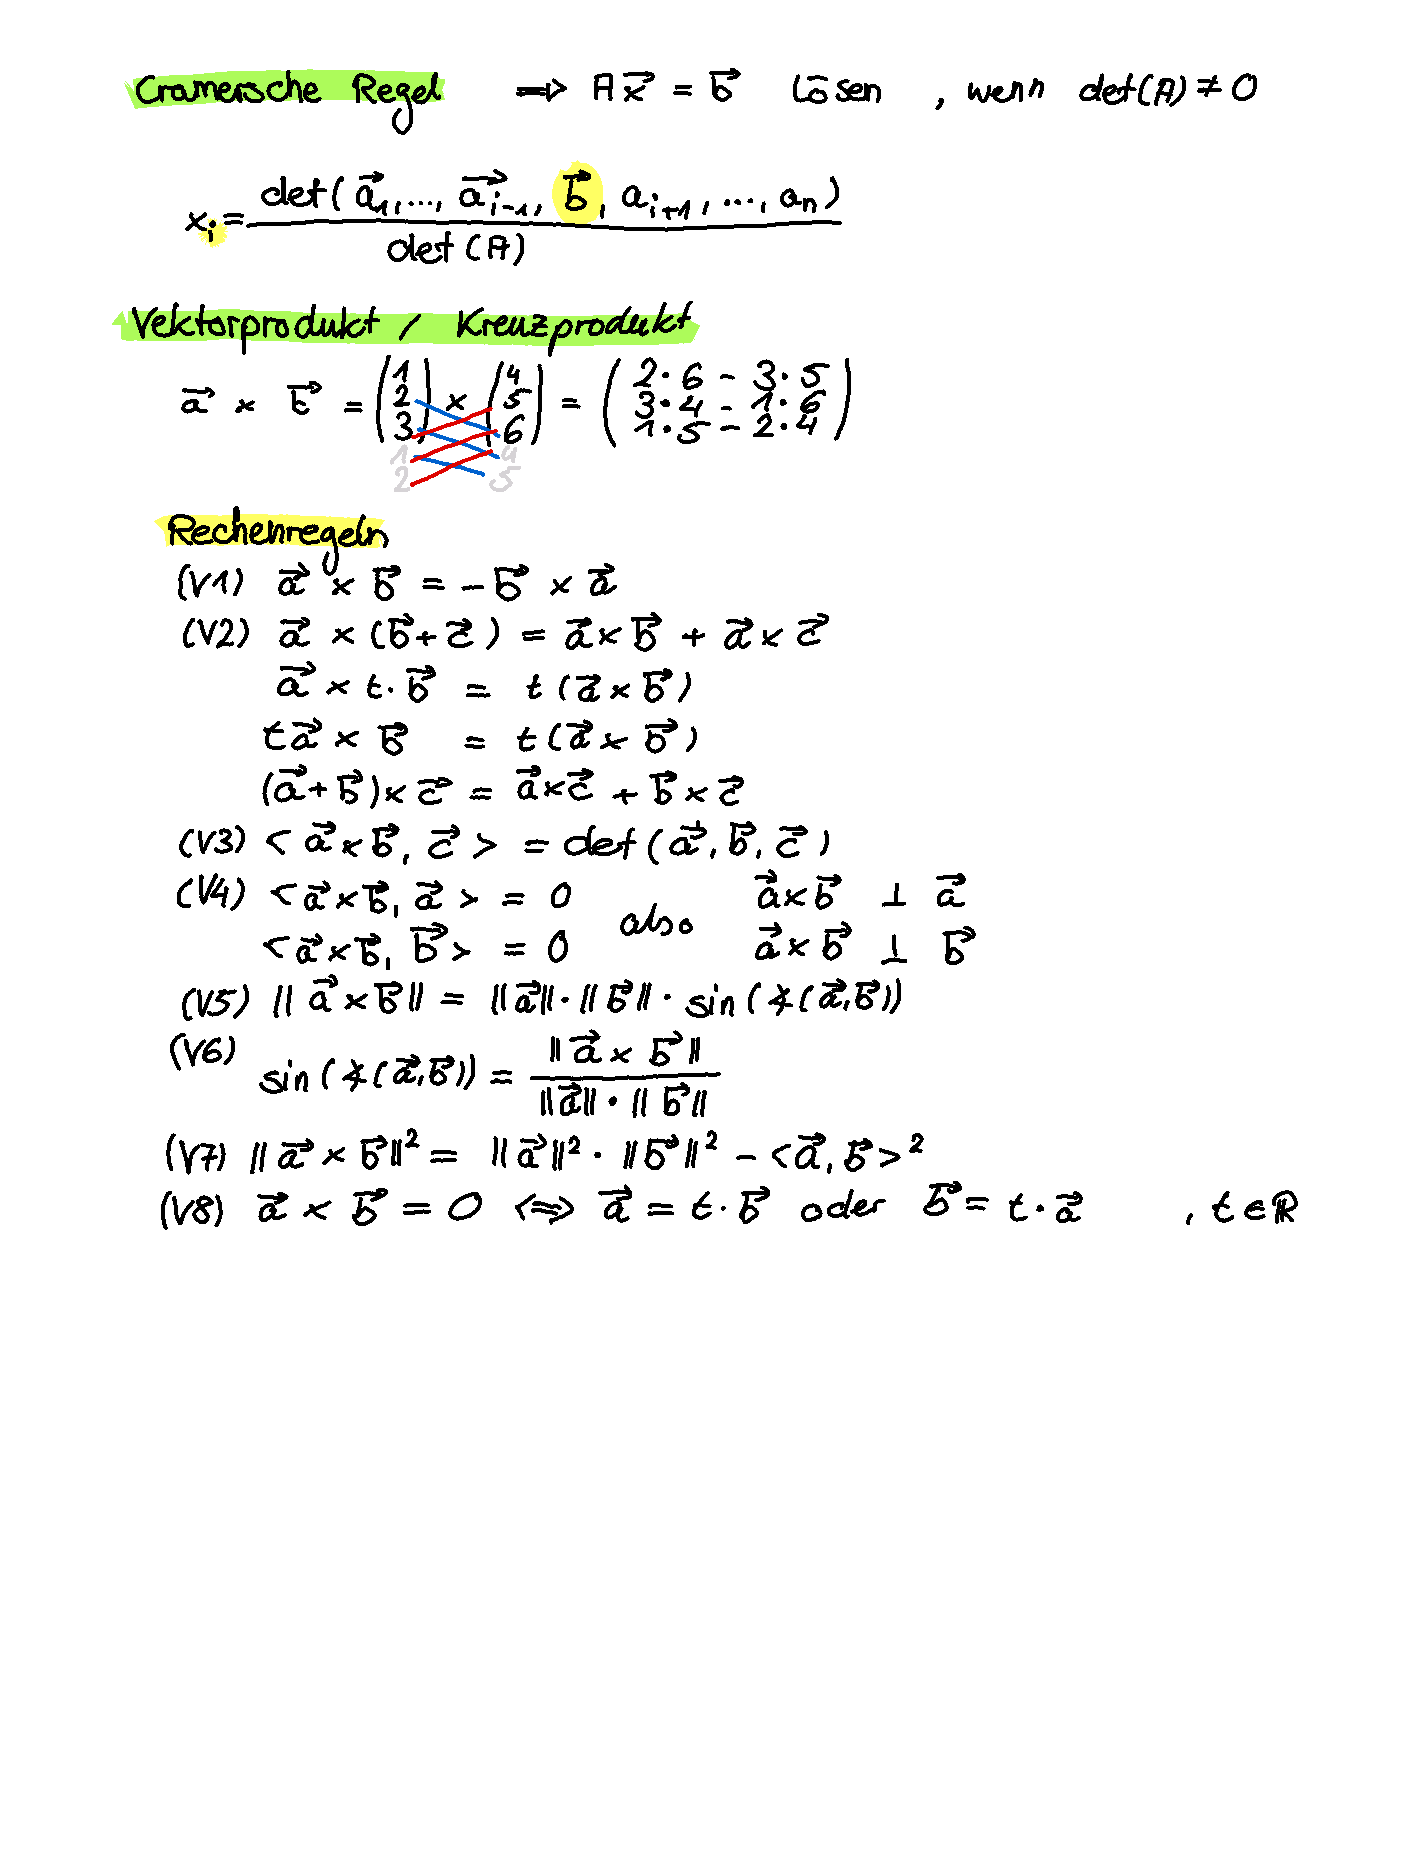 Cramersche Regel ⇒ A x⃗ = b⃗ lösen , wenn det(A) ≠ 0
x_i = det( a⃗_1, ..., a⃗_{i-1}, b⃗, a_{i+1}, ..., a_n ) / det(A)
Vektorprodukt / Kreuzprodukt
a⃗ × b⃗ = (1 2 3) × (4 5 6) = (2·6 - 3·5
3·4 - 1·6
1·5 - 2·4)
1 4
2 5
Rechenregeln
(V1) a⃗ × b⃗ = - b⃗ × a⃗
(V2) a⃗ × (b⃗ + c⃗) = a⃗ × b⃗ + a⃗ × c⃗
a⃗ × t · b⃗ = t (a⃗ × b⃗)
t a⃗ × b⃗ = t (a⃗ × b⃗)
(a⃗ + b⃗) × c⃗ = a⃗ × c⃗ + b⃗ × c⃗
(V3) < a⃗ × b⃗, c⃗ > = det(a⃗, b⃗, c⃗)
(V4) < a⃗ × b⃗, a⃗ > = 0 also a⃗ × b⃗ ⊥ a⃗
< a⃗ × b⃗, b⃗ > = 0 a⃗ × b⃗ ⊥ b⃗
(V5) || a⃗ × b⃗ || = || a⃗ || · || b⃗ || · sin(∢(a⃗, b⃗))
(V6) sin(∢(a⃗, b⃗)) = || a⃗ × b⃗ || / || a⃗ || · || b⃗ ||
(V7) || a⃗ × b⃗ ||² = || a⃗ ||² · || b⃗ ||² - < a⃗, b⃗ >²
(V8) a⃗ × b⃗ = 0 ⇔ a⃗ = t · b⃗ oder b⃗ = t · a⃗ , t ∈ ℝ